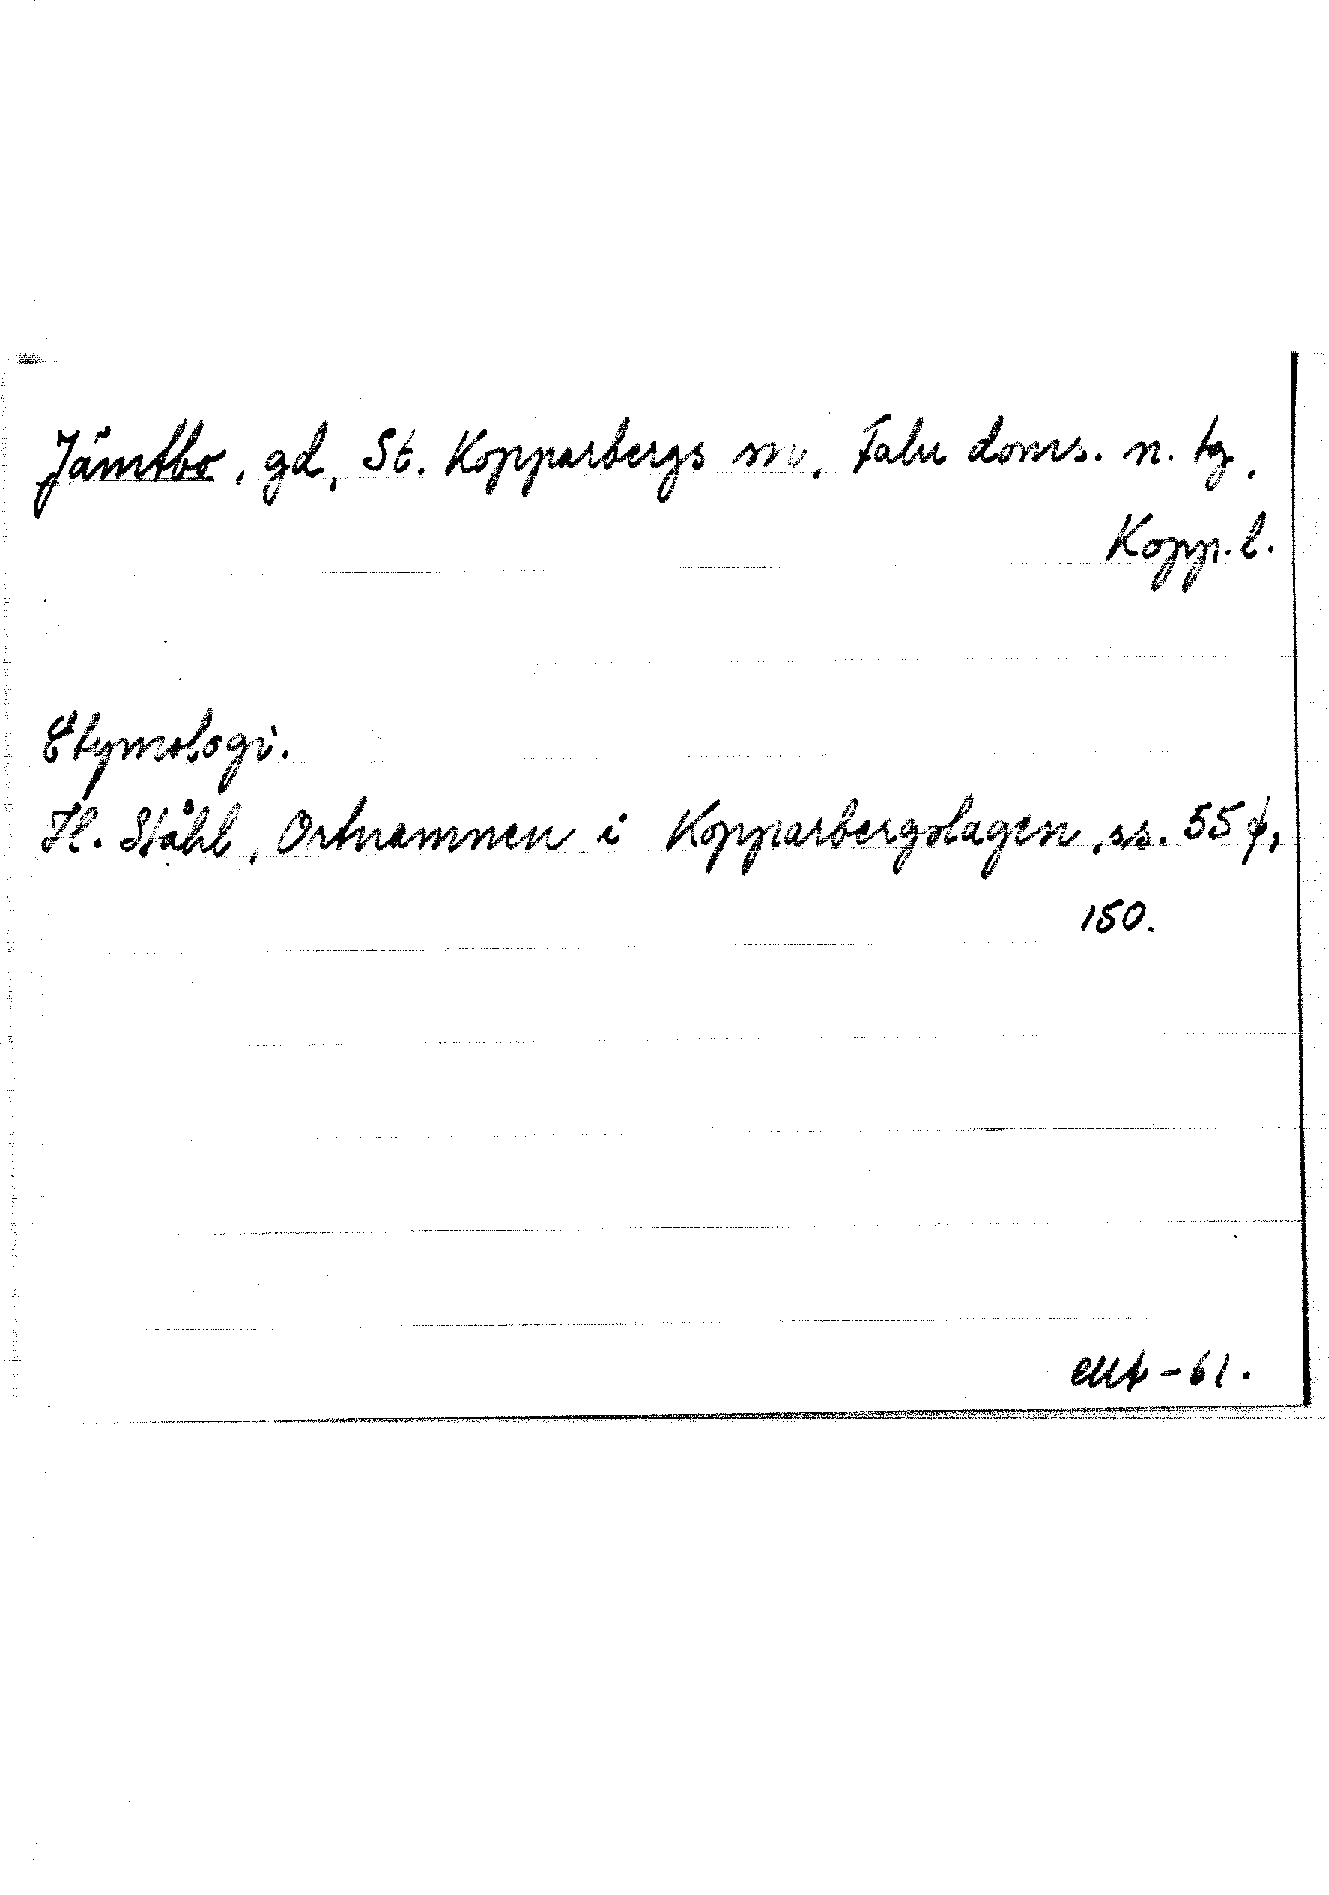 Jämtbo, gd, St. Kopparbergs sn, Falu doms. n. tg,
Kopp. l.
Etymologi.
H. Ståhl, Ortnamnen i Kopparbergslagen, ss. 55 f,
150.
-61.